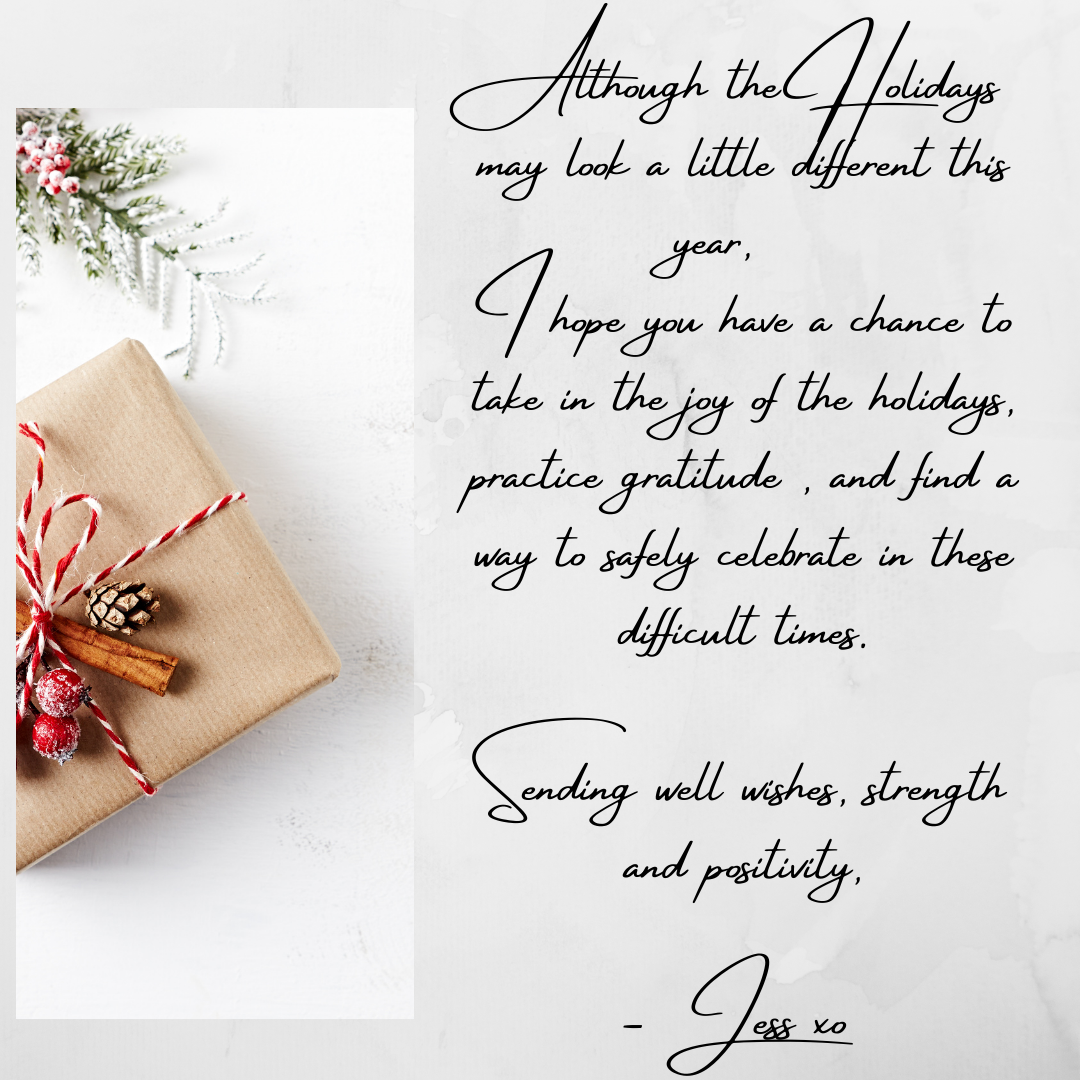 Although the Holidays
may look a little different this
year,
I hope you have a chance to
take in the joy of the holidays,
practice gratitude , and find a
way to safely celebrate in these
difficult times.
Sending well wishes, strength
and positivity,
- Jess xo